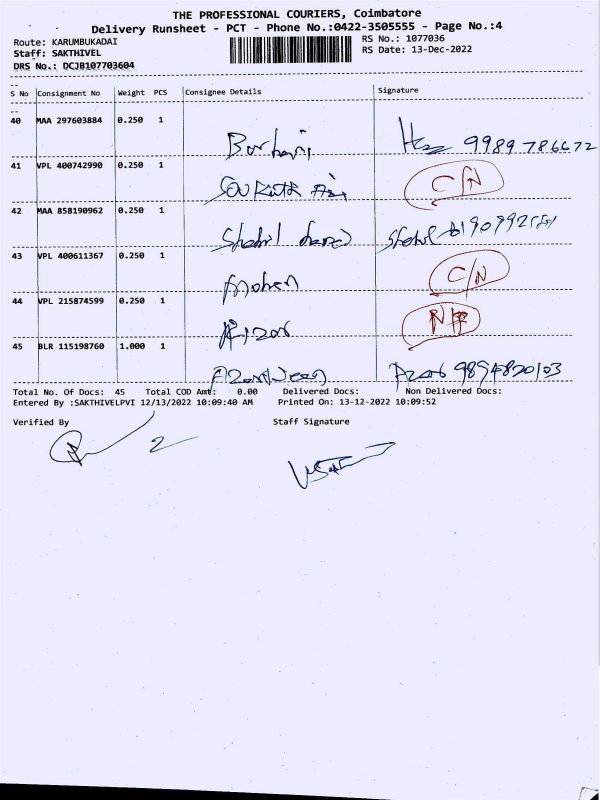 THE PROFESSIONAL COURIERS, Coimbatore
Delivery Runsheet - PCT - Phone No.:0422-3505555 - Page No.:4
Route: KARUMBUKADAI
RS No.: 1077036
Staff: SAKTHIVEL
RS Date: 13-Dec-2022
DRS No.: DCJB107703604
S No Consignment No Weight PCS Consignee Details Signature
40 MAA 297603884 0.250 1
9989786672
41 VPL 400742990 0.250 1
C/N
42 MAA 858190962 0.250 1
43 VPL 400611367 0.250 1
Mohan C/N
44 VPL 215874599 0.250 1
Rizor
45 BLR 115198760 1.000 1
9894820103
Total No. Of Docs: 45 Total COD Amt: 0.00 Delivered Docs: Non Delivered Docs:
Entered By :SAKTHIVELPVI 12/13/2022 10:09:40 AM Printed On: 13-12-2022 10:09:52
Verified By Staff Signature
2